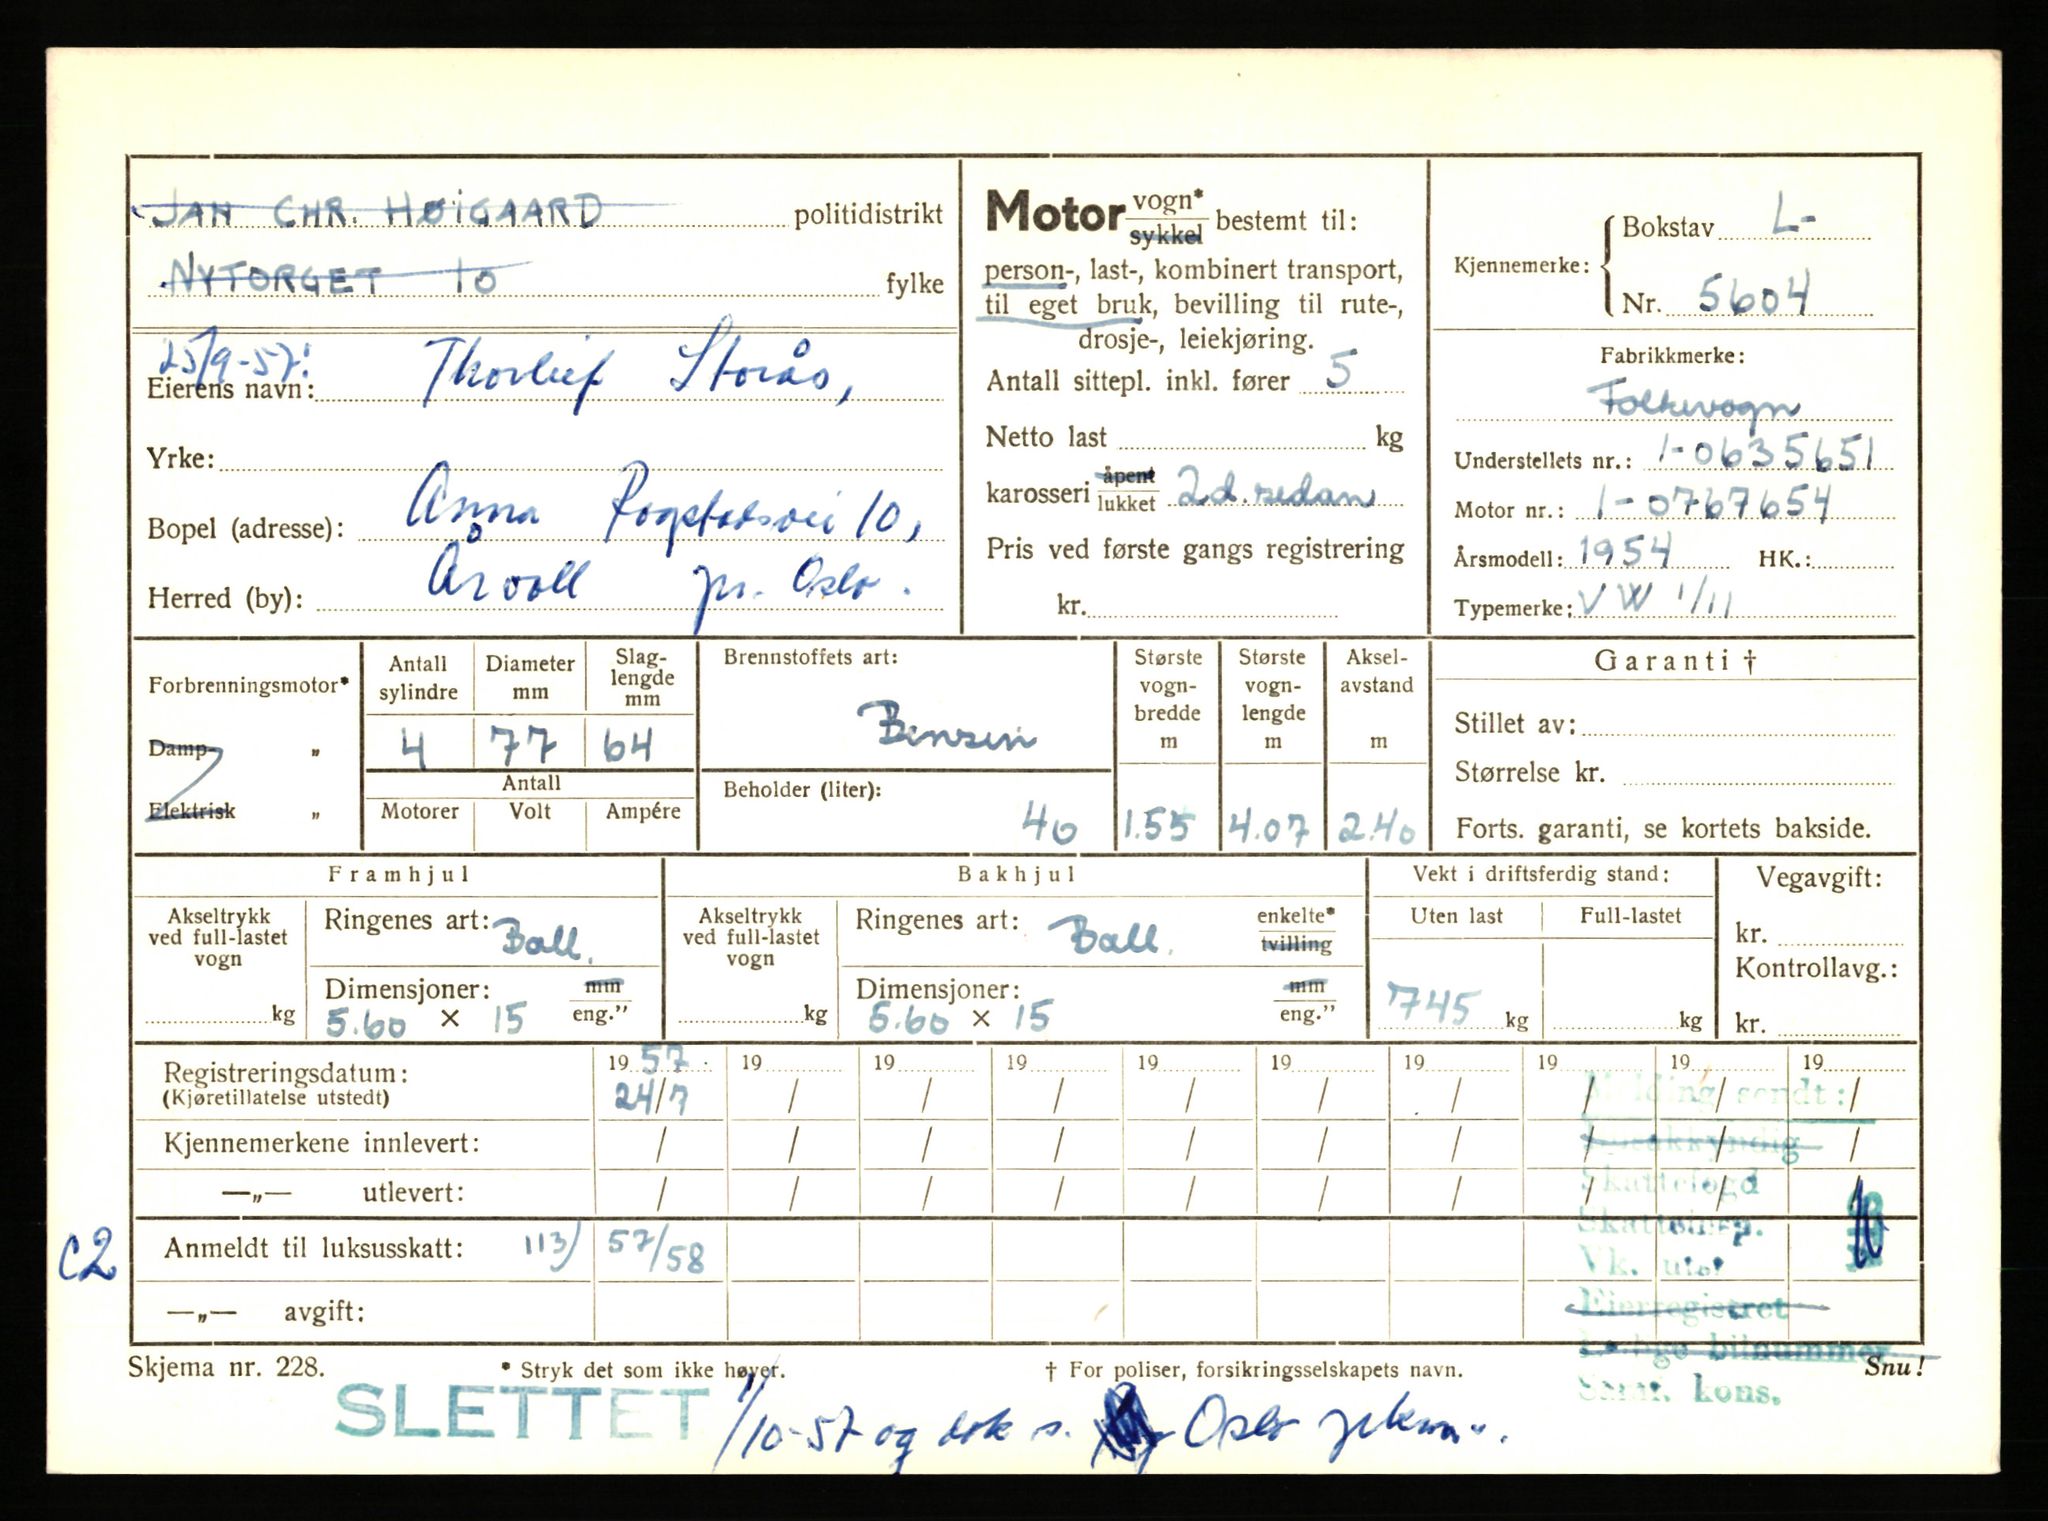 JAN CHR. HØIGAARD politidistrikt
NYTORGET 10 fylke
25/9-57:
Eierens navn: Thorleif Storås,
Yrke:
Bopel (adresse): Anna Rogstadsvei 10,
Herred (by): Årvoll pr. Oslo.
Motor vogn* sykkel bestemt til:
person-, last-, kombinert transport,
til eget bruk, bevilling til rute-,
drosje-, leiekjøring.
Antall sittepl. inkl. fører 5
Netto last kg
karosseri åpent lukket 2d. sedan
Pris ved første gangs registrering
kr.
Kjennemerke: Bokstav L-
Nr. 5604
Fabrikkmerke:
Folkevogn
Understellets nr.: 1-0635651
Motor nr.: 1-0767654
Årsmodell: 1954 HK.:
Typemerke: VW 1/11
Forbrenningsmotor*
Damp- „
Elektrisk „
Antall sylindre 4
Diameter mm 77
Slag-
lengde
mm 64
Antall
Motorer Volt Ampére
Brennstoffets art:
Bensin
Beholder (liter):
40
Største
vogn-
bredde
m
1.55
Største
vogn-
lengde
m
4.07
Aksel-
avstand
m
2.40
Garanti †
Stillet av:
Størrelse kr.
Forts. garanti, se kortets bakside.
Framhjul
Akseltrykk
ved full-lastet
vogn
kg
Ringenes art: Ball.
Dimensjoner: mm
5.60 × 15 eng.”
Bakhjul
Akseltrykk
ved full-lastet
vogn
kg
Ringenes art: Ball. enkelte*
tvilling
Dimensjoner: mm
5.60 × 15 eng.”
Vekt i driftsferdig stand:
Uten last Full-lastet
745 kg kg
Vegavgift:
kr.
Kontrollavg.:
kr.
Registreringsdatum: 1957 19 19 19 19 19 19 19 19 19
(Kjøretillatelse utstedt) 24/7 / / / / / / / / /
Kjennemerkene innlevert: / / / / / / / / / /
—„— utlevert: / / / / / / / / / /
C2
Anmeldt til luksusskatt: 113) 57/58
—„— avgift:
Melding sendt:
Skattefogd
Eierregistret
Ledige bilnummer
kons.
Skjema nr. 228. * Stryk det som ikke høyer. † For poliser, forsikringsselskapets navn. Snu!
SLETTET 1/10-57 og dok s. Oslo